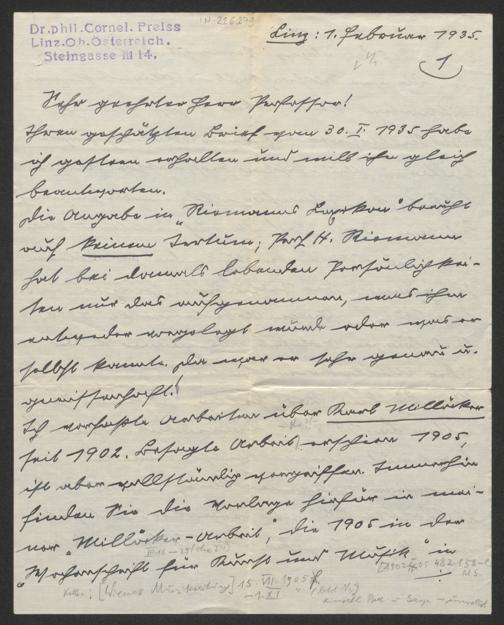 Dr. phil. Cornel. Preiss
Linz. Ob. Österreich.
Steingasse III 14.
IN-226279
Linz: 1. Februar 1935.
1
Sehr geehrter Herr Professor!
Ihren geschätzten Brief vom 30. I. 1935 habe
ich gestern erhalten und will ihn gleich
beantworten.
Die Angabe in „Riemanns Lexikon" beruht
auf keinem Irrtum; Prof. H. Riemann
hat bei damals lebenden Persönlichkei-
ten nur das aufgenommen, was ihm
entweder vorgelegt wurde oder was er
selbst kannte. Da war er sehr genau u.
gewissenhaft!
Ich verfaßte Arbeiten über Karl Millöcker
seit 1902. Besagte Arbeit erschien 1905,
ist aber vollständig vergriffen. Immerhin
finden Sie die Vorlage hiefür in mei-
ner „Millöcker-Arbeit", die 1905 in der
„Wochenschrift für Kunst und Musik" in
[Wiener Musikzeitung] 15. VII. 1905
– 1. XI